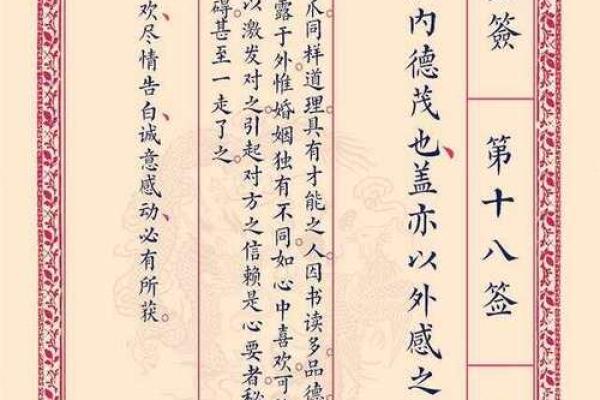 簽
第十八签
内德茂也、盖亦以外感之
同样道理。具有才能之人因书读多品德
露于外。惟婚姻独有不同。如心中喜欢可
以激发对之。引起对方之信赖是心要者秘
碍甚至一走了之。
欢、尽情告白、诚意感动、必有所获。